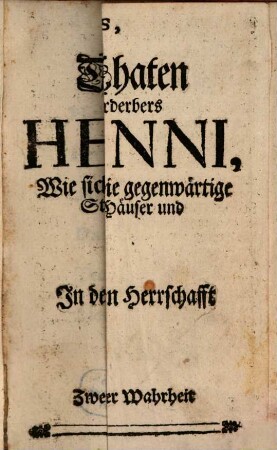 s,
Thaten
rderbers
HENNI,
Wie sich die gegenwärtige
St Häuser und
In den Herrschafft
Zweer Wahrheit